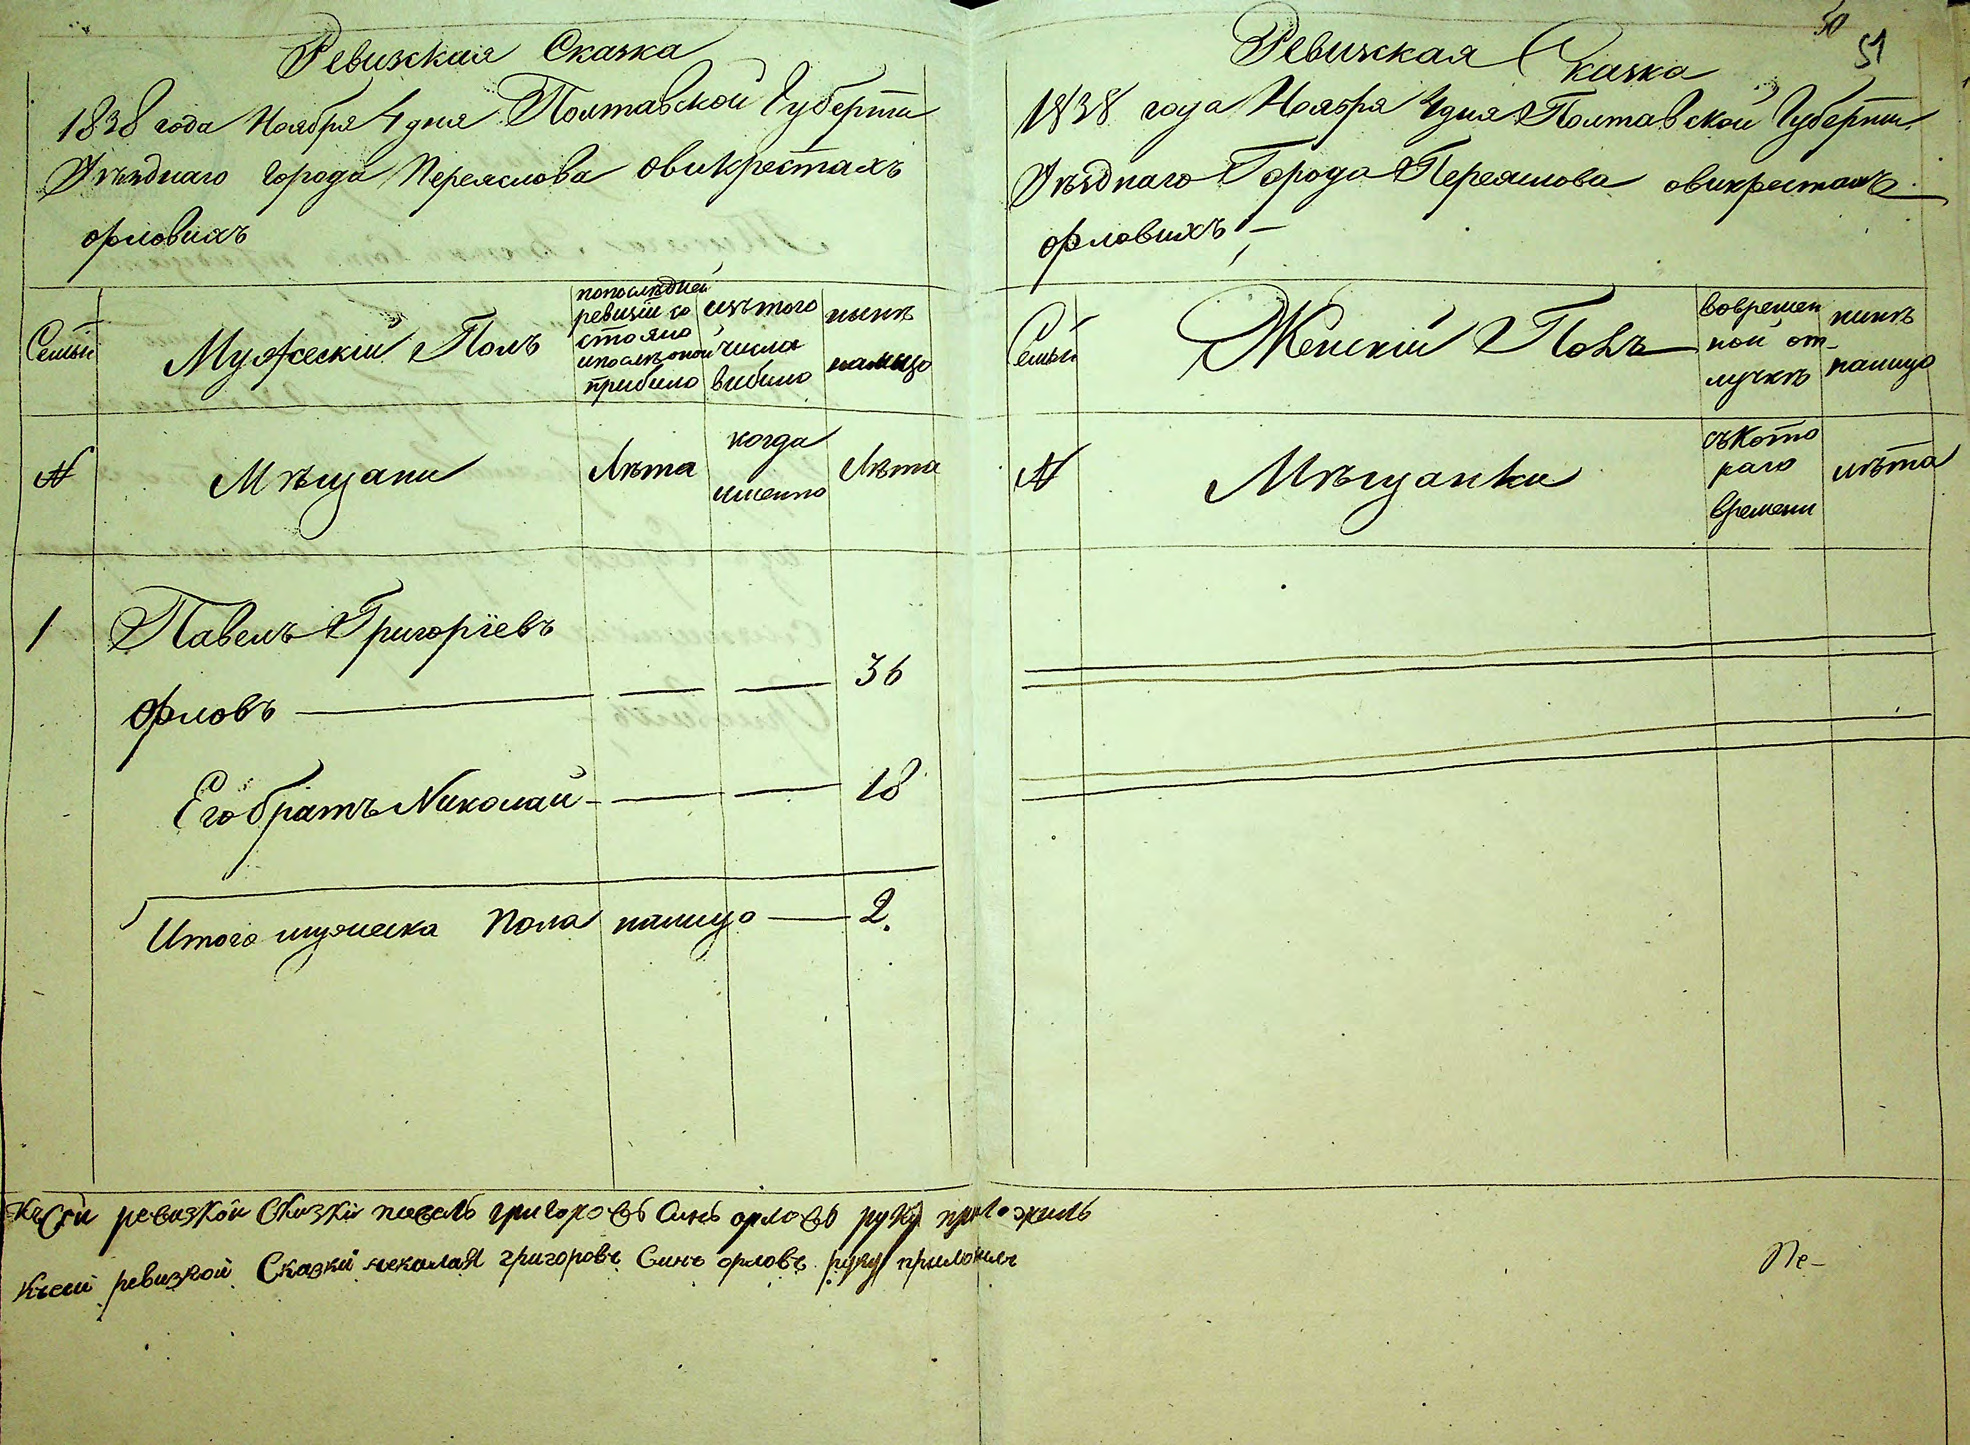 Ревизская Сказка
1838 года Ноября 4 дня Полтавской Губернии
Уѣзднаго города Переяслова овикрестахъ
орловихъ
Семьи
Мужескій Полъ
попослѣдней
ревизіи со
стояло
ипослѣоной
прибило
изътого
числа
вибило
нынѣ
налицо
№
Мѣщани
Лѣта
когда
именно
Лѣта
1
Павелъ Григоріевъ
Орловъ
36
Его братъ Николай
18
Итого мужеска пола налицо 2.
50
51
Ревизская Сказка
1838 года Ноября 4 дня Полтавской Губернии
Уѣзднаго Города Переяслова овикрестахъ
орловихъ
Семьи
Женскій Полъ
вовремен
ной от-
лучкѣ
нинѣ
налицо
№
Мѣщанки
съкото
раго
времени
лѣта
Къ сей ревизкой сказки павелъ григоровъ синъ орловъ руку приложилъ
Къ сей ревизкой Сказки неколай григоровъ Синъ орловъ руку приложилъ
Пе-